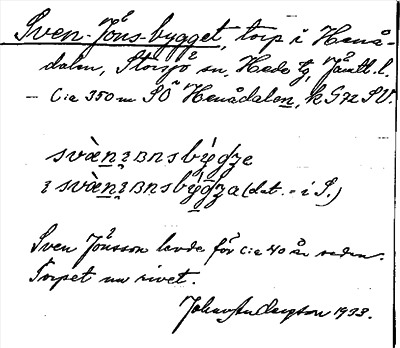 Sven-Jöns-bygget, torp i Henå-
dalen, Storsjö sn, Hede tg, Jämtl. l.
– C:a 350 m SÖ Henådalen, k G72 SV.
svὰn̠ɪ̯ʙnsbýgʒe
ɪ svὰn̠ɪ̯ʙnsbýgʒa (dat. - i S.)
Sven Jönsson levde för c:a 40 år sedan.
Torpet nu rivet.
Johan Andersson 1933.